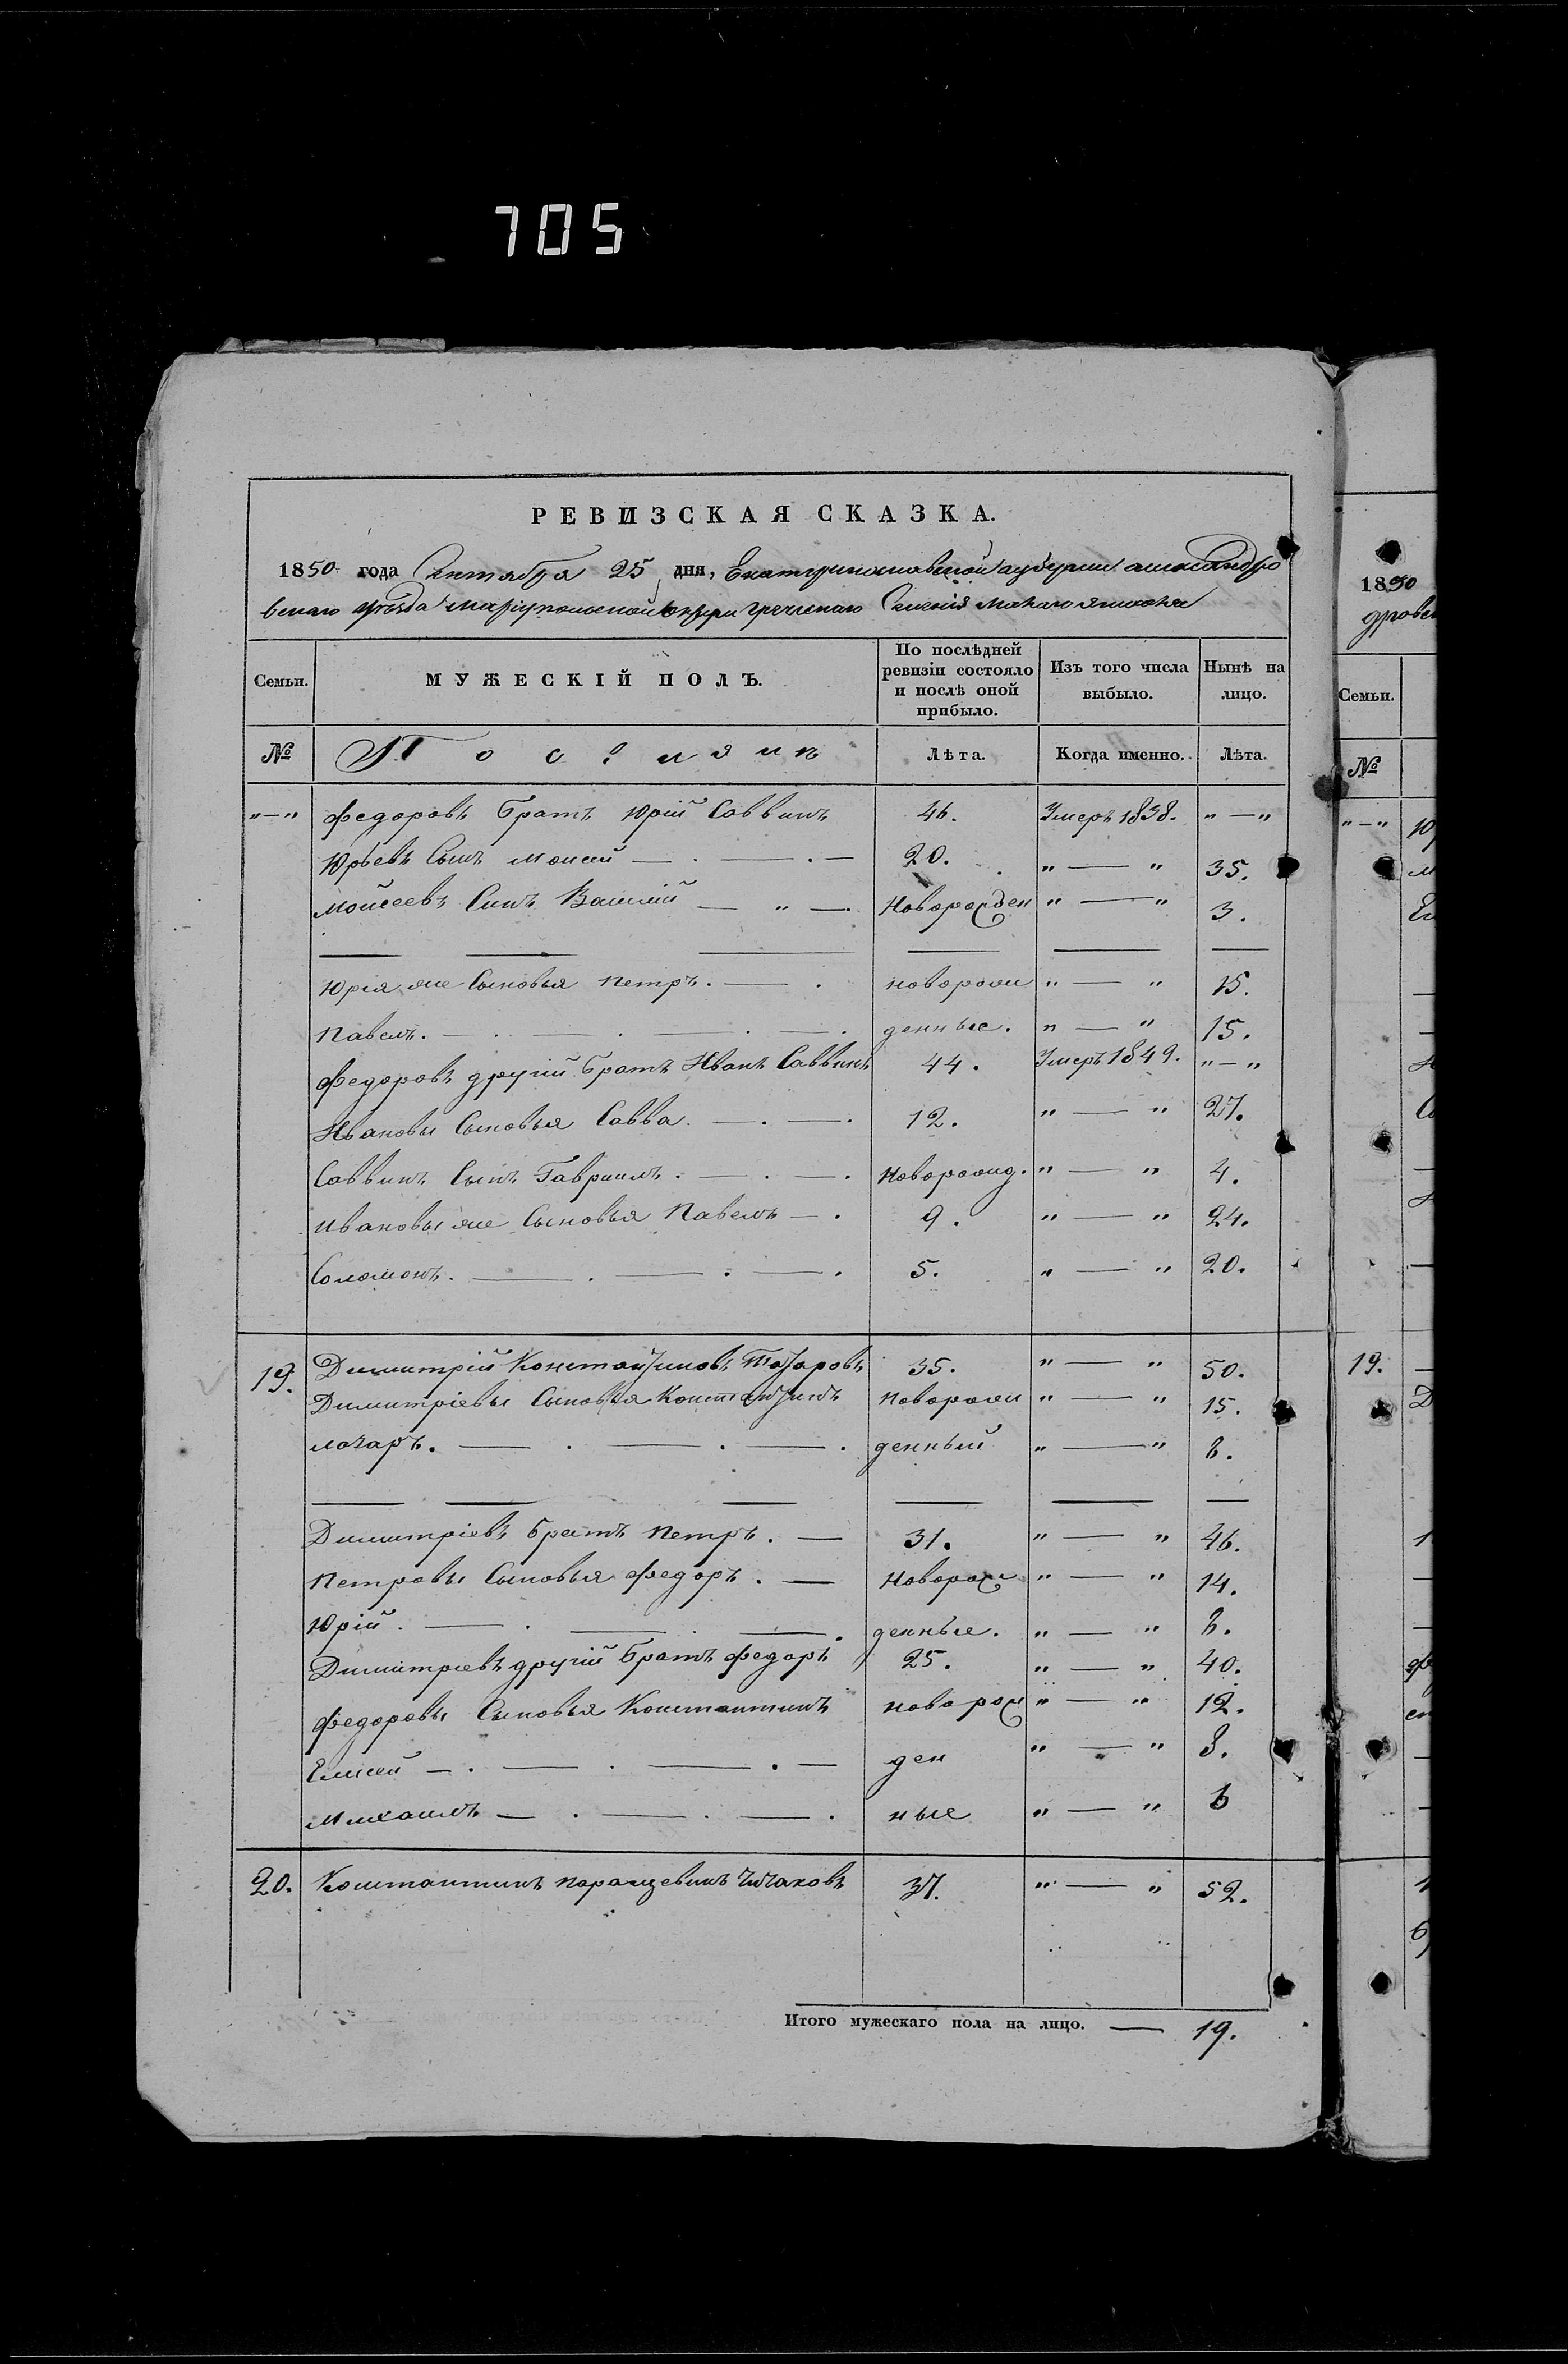 705
РЕВИЗСКАЯ СКАЗКА.
1850 года Октября 25 дня, Екатеринославской губернии александро
вскаго уѣзда мариупольской округи греческаго Селенія малаго янисоля
Семьи. МУЖЕСКІЙ ПОЛЪ. По послѣдней ревизіи состояло и послѣ оной прибыло. Изъ того числа выбыло. Нынѣ на лицо.
№ Поселянъ Лѣта. Когда именно. Лѣта.
„—„ Федоровъ Братъ Юрій Саввинъ 46. Умеръ 1838. „—„
Юрьевъ Сынъ Моисей — . — . — 20. „—„ 35.
Мойсеевъ Сынъ Василій — „ — Новорожден „—„ 3.
Юрія же Сыновья Петръ. — . новорож „—„ 15.
Павелъ. — . — . — . — . денные. „—„ 15.
Федоровъ другій Братъ Иванъ Саввинъ 44. Умеръ 1849. „—„
Ивановы Сыновья Савва. — . — . 12. „—„ 27.
Саввинъ Сынъ Гавриилъ. — . — . Новорожд. „—„ 4.
Ивановы же Сыновья Павелъ — . 9. „—„ 24.
Соломонъ. — . — . — . 5. „—„ 20.
19. Димитрій Константиновъ 35. „—„ 50.
Димитріевы Сыновья Константинъ Новорож „—„ 15.
Лазаръ. — . — . — . денный „—„ 8.
Димитріевъ Братъ Петръ. — 31. „—„ 46.
Петровы Сыновья Федоръ. — Новорож „—„ 14.
Юрій. — . — . — . денные. „—„ 8.
Димитріевъ другій Братъ Федоръ 25. „—„ 40.
Федоровы Сыновья Константинъ новорож „—„ 12.
Елисей — . — . — . — ден „—„ 8.
Михаилъ — . — . — . ные „—„ 6
20. Константинъ 37. „—„ 52.
Итого мужескаго пола на лицо. — 19.
1850
дровск
Семьи.
№
„—„
19.